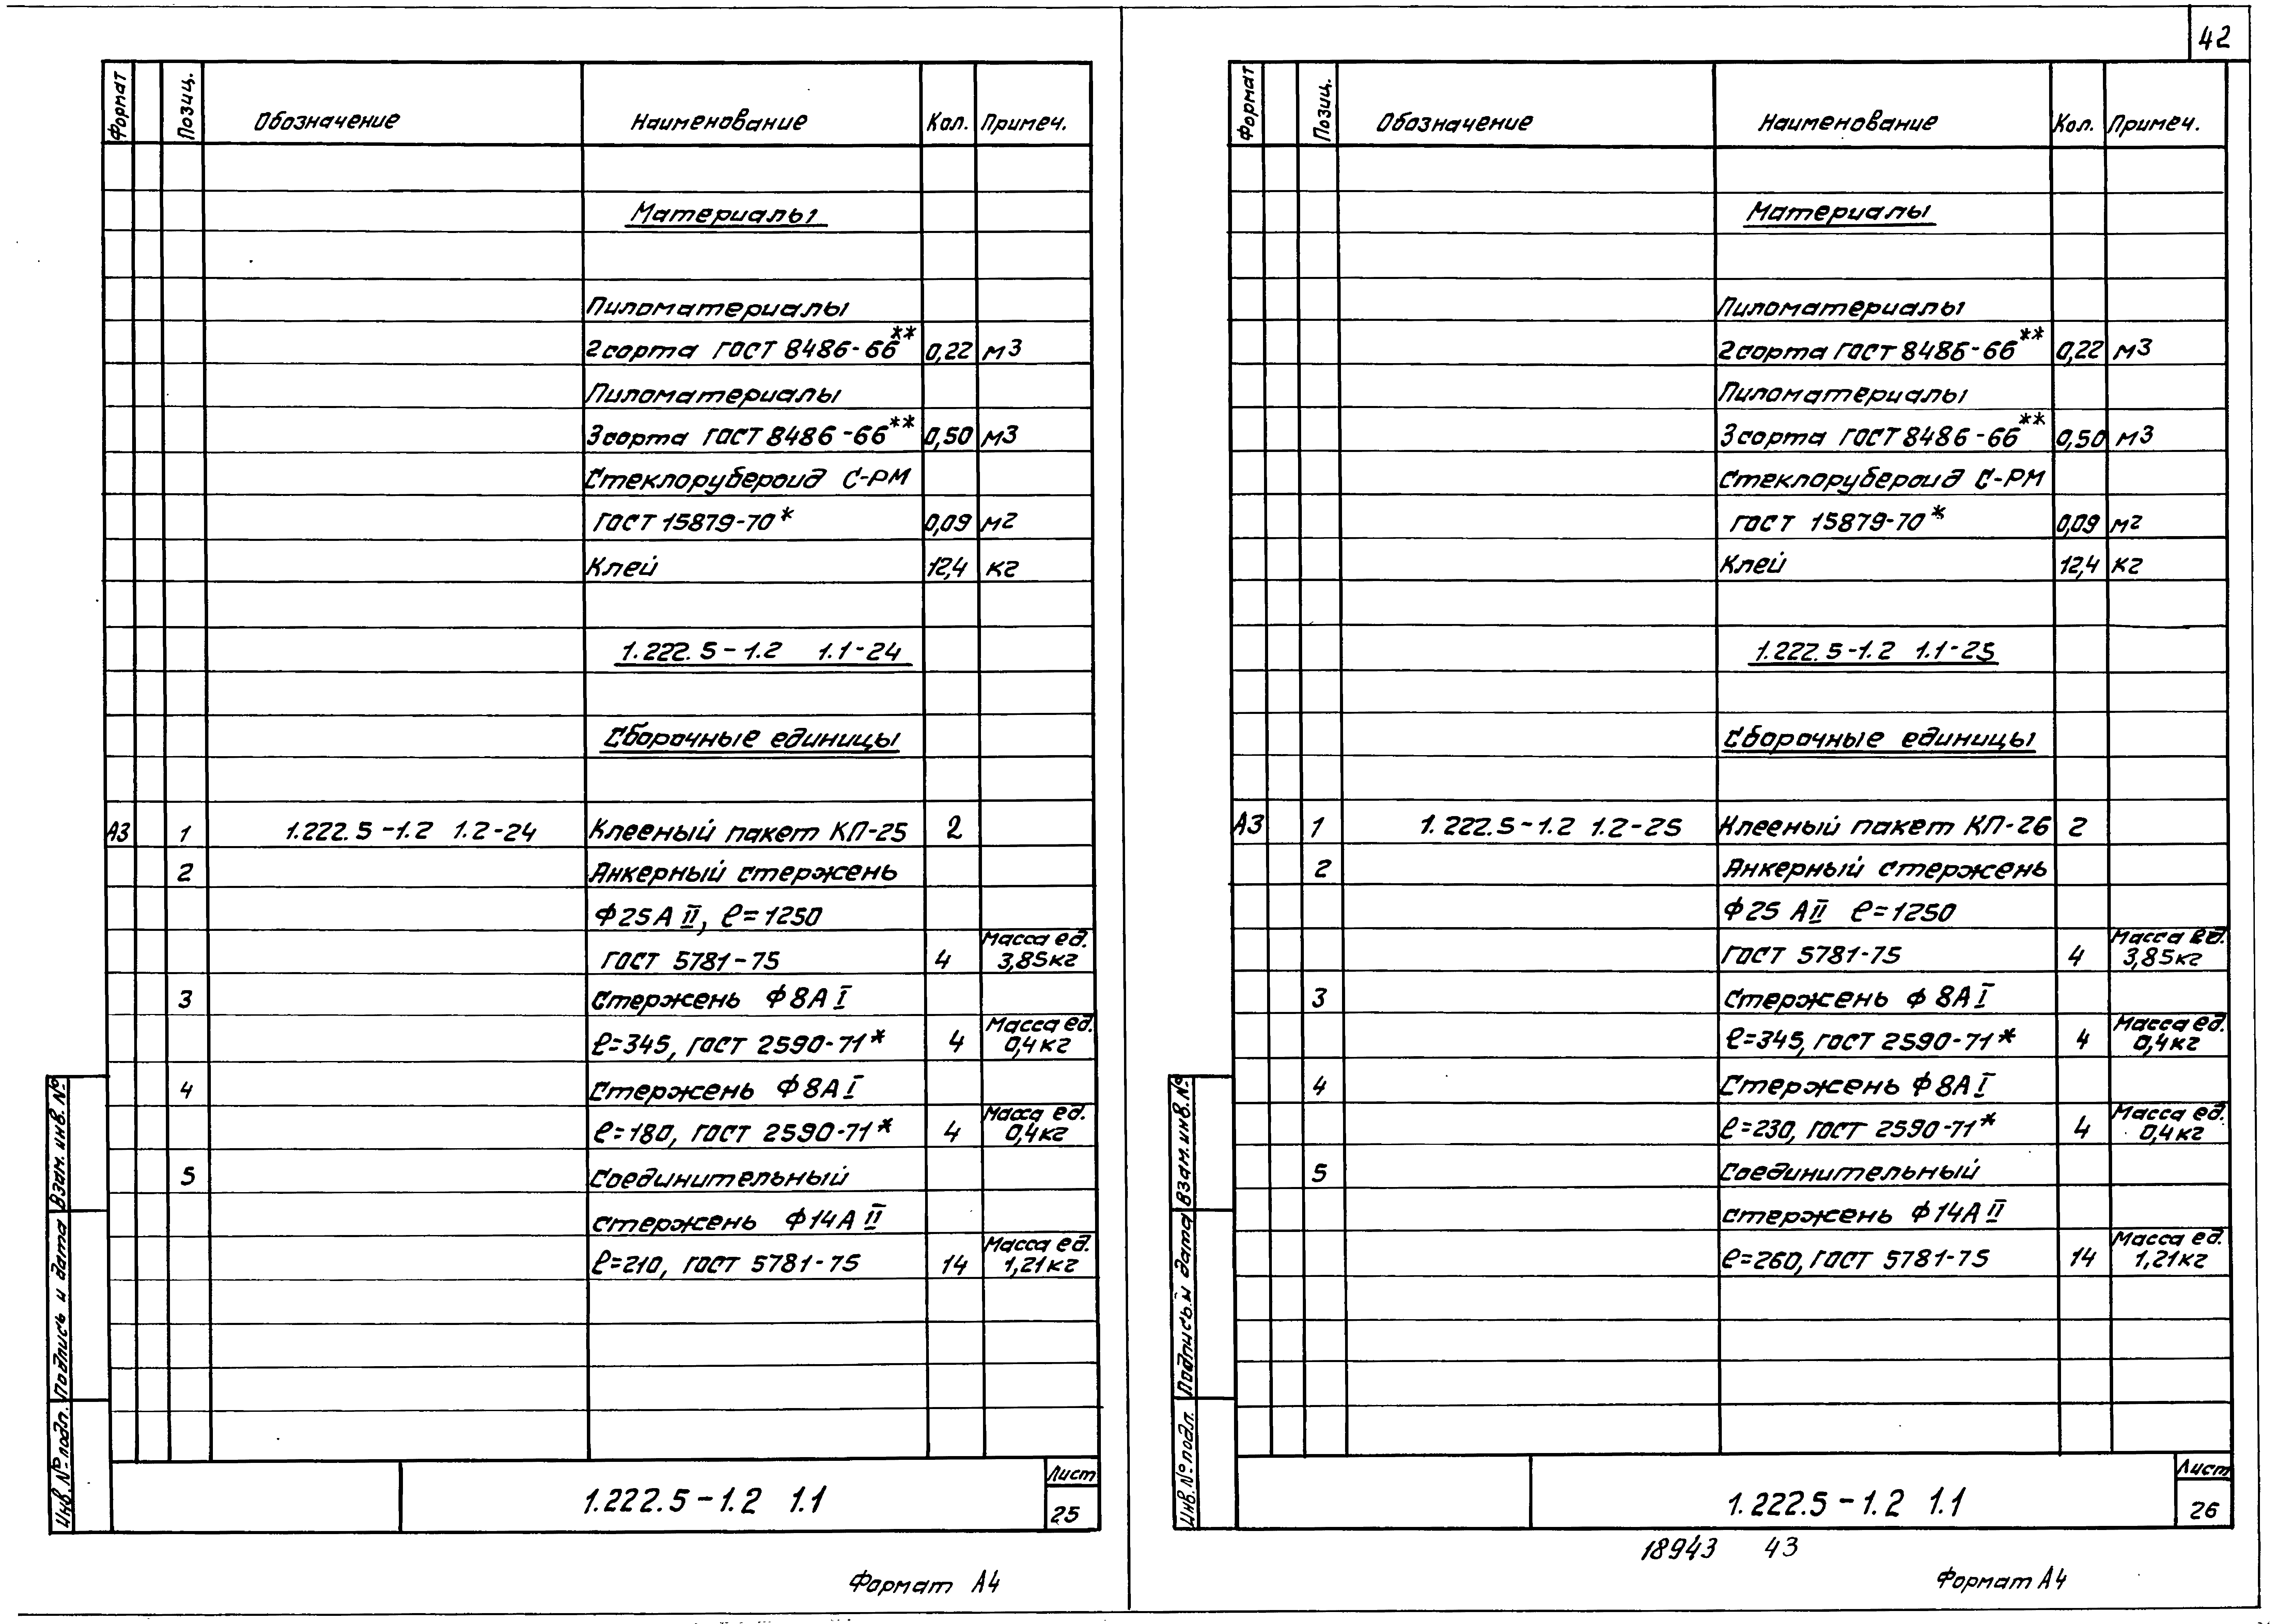 42
Формат Позиц. Обозначение Наименование Кол. Примеч.
Материалы
Пиломатериалы
2 сорта ГОСТ 8486-66** 0,22 м3
Пиломатериалы
3 сорта ГОСТ 8486-66** 0,50 м3
Стеклорубероид С-РМ
ГОСТ 15879-70* 0,09 м2
Клей 12,4 кг
1.222.5-1.2 1.1-24
Сборочные единицы
А3 1 1.222.5-1.2 1.2-24 Клееный пакет КП-25 2
2 Анкерный стержень
Ф25АII, ℓ=1250
Масса ед.
ГОСТ 5781-75 4 3,85кг
3 Стержень Ф8АI
Масса ед.
ℓ=345, ГОСТ 2590-71* 4 0,4кг
4 Стержень Ф8АI
Масса ед.
ℓ=180, ГОСТ 2590-71* 4 0,4кг
5 Соединительный
стержень Ф14АII
Масса ед.
ℓ=210, ГОСТ 5781-75 14 1,21кг
Взам. инв. №
Подпись и дата
Инв. № подл.
1.222.5-1.2 1.1
Лист
25
Формат А4
Формат Позиц. Обозначение Наименование Кол. Примеч.
Материалы
Пиломатериалы
2 сорта ГОСТ 8486-66** 0,22 м3
Пиломатериалы
3 сорта ГОСТ 8486-66** 0,50 м3
Стеклорубероид С-РМ
ГОСТ 15879-70* 0,09 м2
Клей 12,4 кг
1.222.5-1.2 1.1-25
Сборочные единицы
А3 1 1.222.5-1.2 1.2-25 Клееный пакет КП-26 2
2 Анкерный стержень
Ф25 АII ℓ=1250
Масса ед.
ГОСТ 5781-75 4 3,85кг
3 Стержень Ф8АI
Масса ед.
ℓ=345, ГОСТ 2590-71* 4 0,4кг
4 Стержень Ф8АI
Масса ед.
ℓ=230, ГОСТ 2590-71* 4 0,4кг
5 Соединительный
стержень Ф14АII
Масса ед.
ℓ=260, ГОСТ 5781-75 14 1,21кг
Взам. инв. №
Подпись и дата
Инв. № подл.
1.222.5-1.2 1.1
Лист
26
18943 43
Формат А4